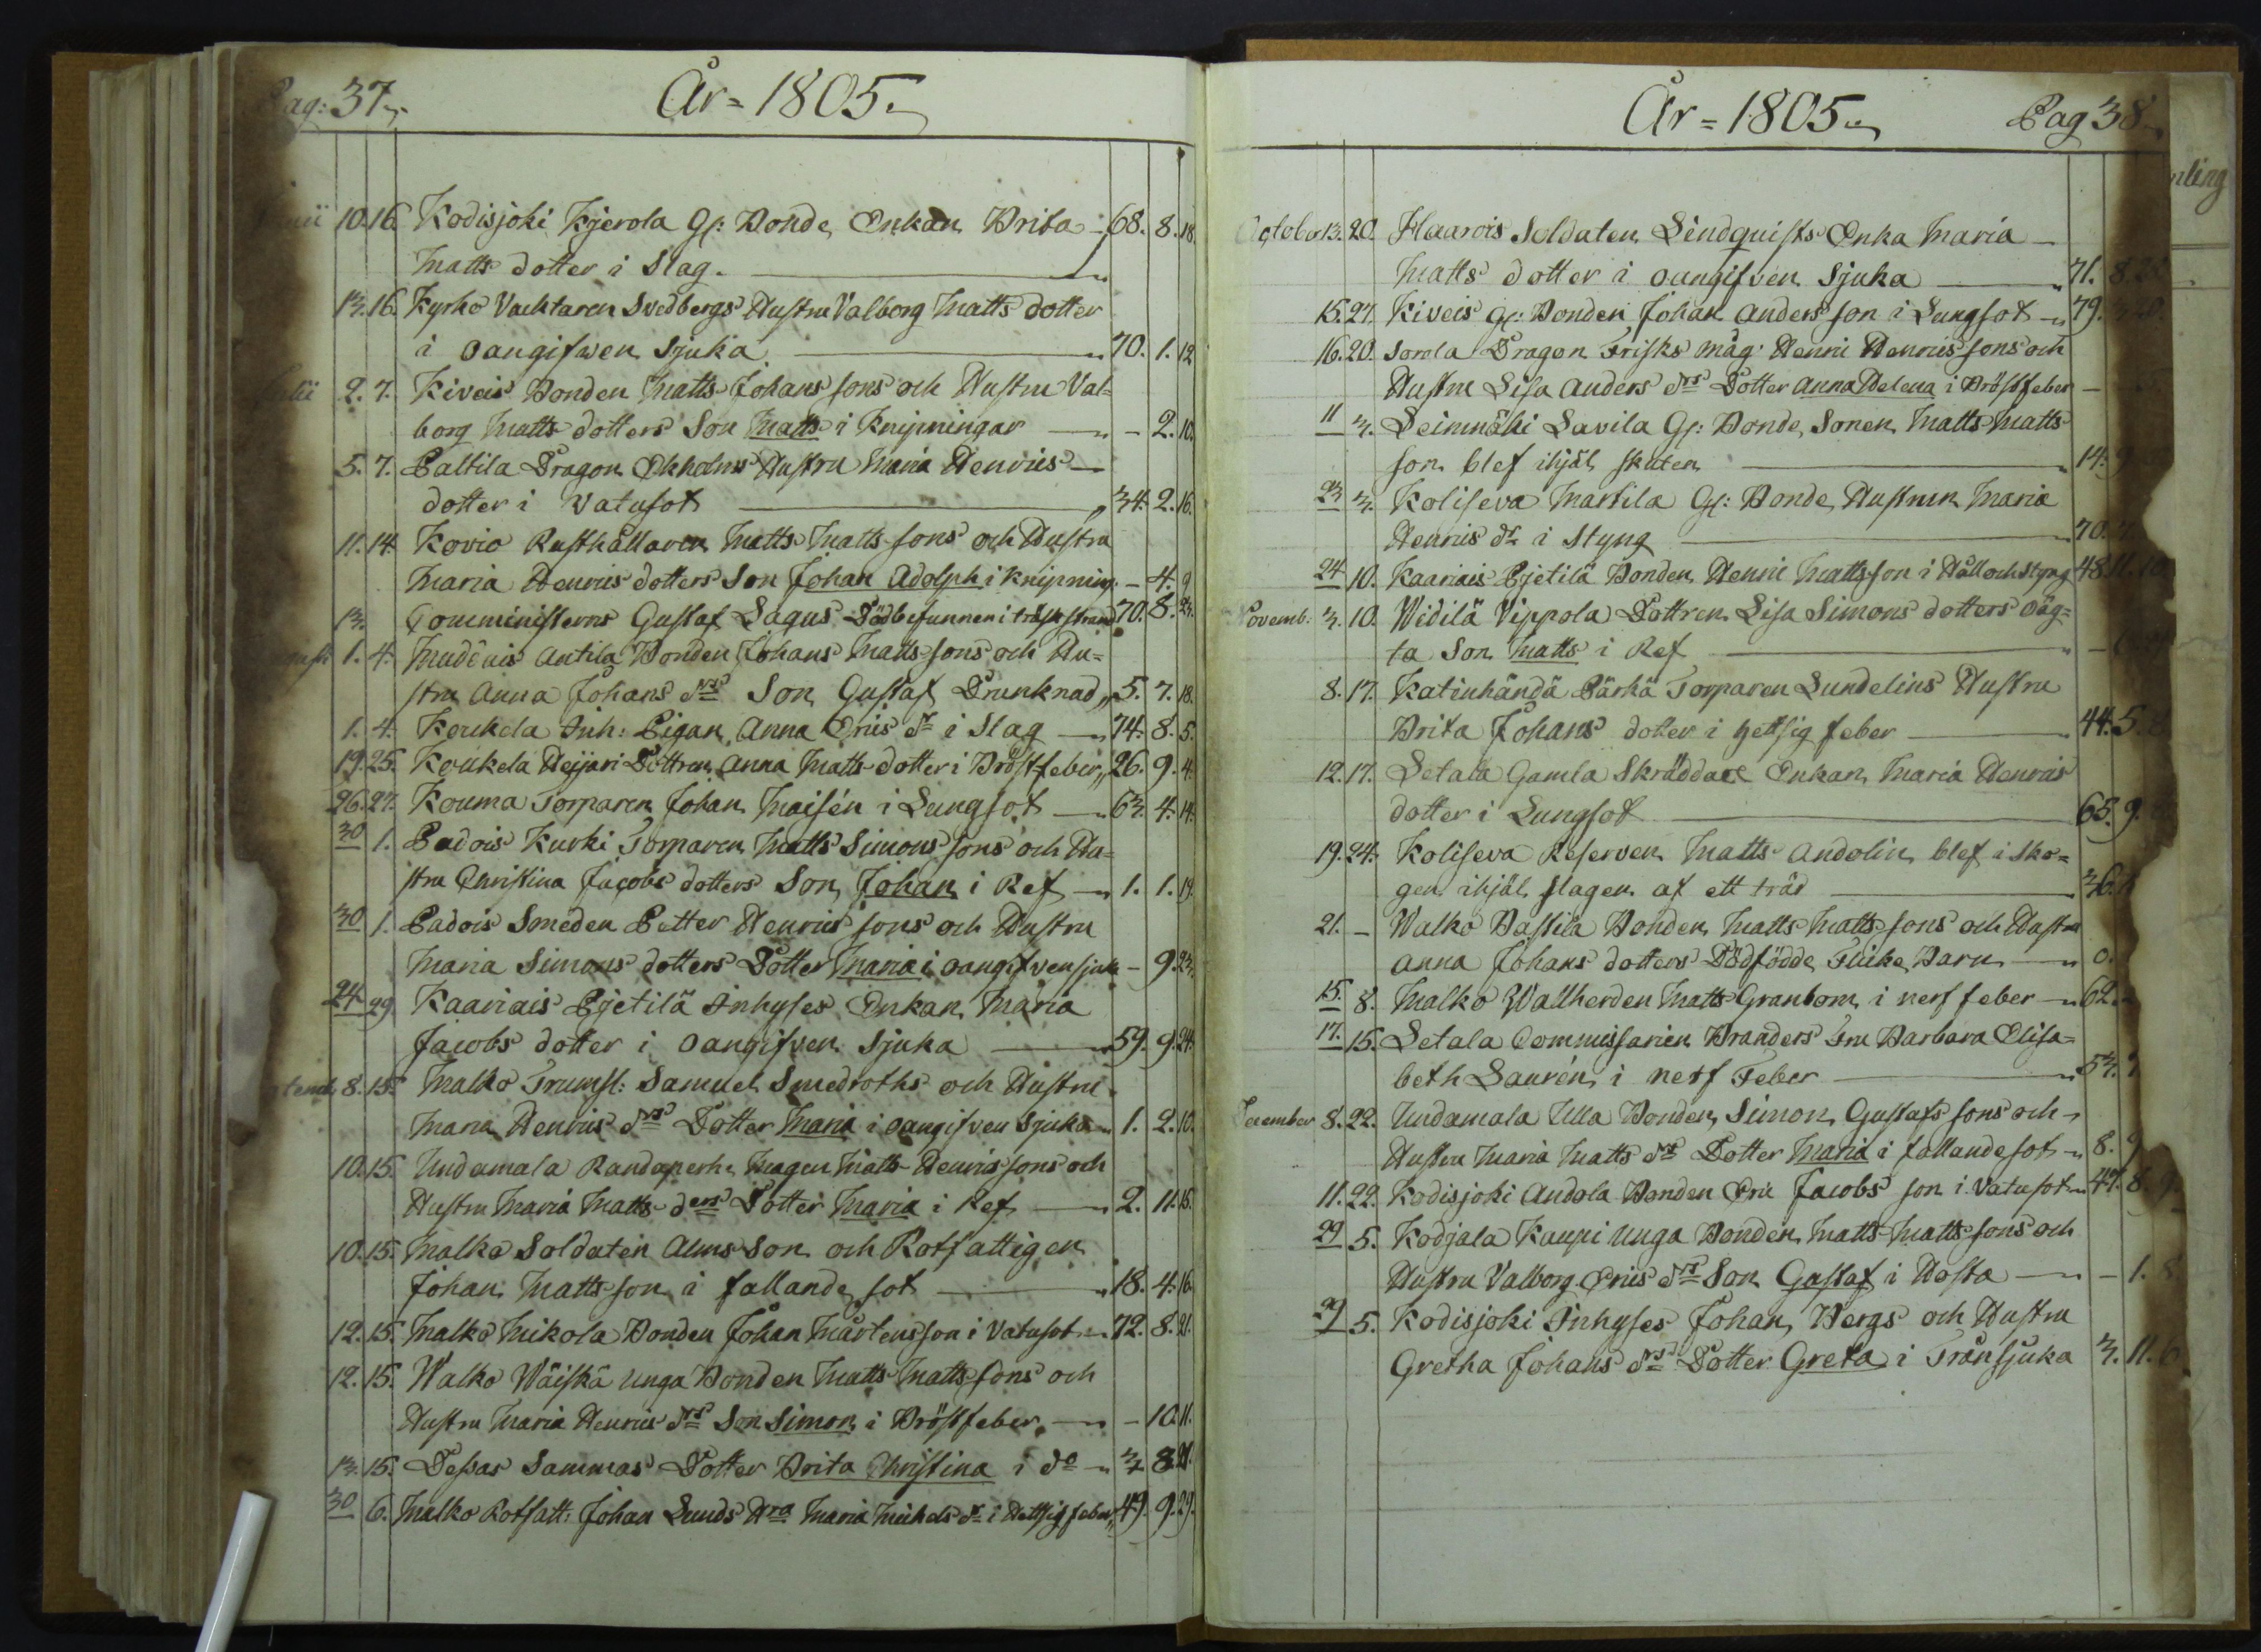 Pag: 37.
År = 1805.
10. 16. Kodisjoki Kjerola Gl: Bonde Enkan Brita 68. 8. 18.
Matts dotter i Slag.
13. 16. Kyrko Vacktaren Svedbergs Hustru Valborg Matts dotter
i oangifwen Sjuka 70. 1. 12.
2. 7. Kiveis Bonden Matts Johans sons och Hustru Val=
borg Matts dotters Son Matts i Knipningar - 2. 10.
5. 7. Paltila Dragon Ekholms Hustru Maria Henrics
dotter i Vatusot 34. 2. 16.
11. 14. Kovio Rusthållaren Matts Matts sons och Hustru
Maria Henrics dotters Son Johan Adolph i Knipning. - 4. 9.
13. Comministerns Gustaf Sagus Dödbefunnen i träsk strand 70. 8. 23.
1. 4. Antila Bonden Johans Matts sons och Hu=
stru Anna Johans drs Son Gustaf Drunknad 5. 7. 18.
1. 4. Koukela Inh: Pigan Anna Erics dr i Slag 74. 8. 5.
19. 25. Koukela Heijari Dottren Anna Matts dotter i Bröstfeber 26. 9. 4.
26. 27. Kouma Torparen Johan Maisén i Lungsot 63. 4. 14.
30 1. Padois Kurki Torparen Matts Simons sons och Hu=
stru Christina Jacobs dotters Son Johan i Ref 1. 1. 19.
30 1. Padois Smeden Petter Henrics sons och Hustru
Maria Simons dotters Dotter Maria i oangifven sjuk - 9. 23.
24 29. Kaariais Pjetilä Inhyses Enkan Maria
Jacobs dotter i oangifven Sjuka 59. 9. 24.
8. 15. Malko Trumsl: Samuel Smedroths och Hustru
Maria Henrics drs Dotter Maria i oangifven Sjuka 1. 2. 10.
10. 15. Undamala Randaperh. Magen Matts Henrics sons och
Hustru Maria Matts ders Dotter Maria i Ref 2. 11. 15.
10. 15. Malko Soldaten Alms Son och Rotfattigen
Johan Matts son i fallande sot 18. 4. 16.
12. 15. Malko Mikola Bonden Johan Mårtensson i Vatusot 72. 8. 21.
12. 15. Walko Wäiskä unga Bonden Matts Matts sons och
Hustru Maria Henrics drs Son Simon i Bröstfeber - 10. 11.
13. 15. Dessas Sammas Dotter Brita Christina i do 3. 8. 21.
30 6. Malko Rotfatt: Johan Lunds Hra Maria Michels dr i Hettsig feber 49. 9. 29.
År = 1805.
Pag 38.
October 13. 20. Haarois Soldaten Lindquists Enka Maria
Matts dotter i oangifven Sjuka 71. 8.
15. 27. Kiveis Gl: Bonden Johan Anders son i Lungsot 79.
16. 20. Sorola Dragon Frisks måg Henric Henrics sons och
Hustru Lisa Anders drs Dotter Anna Helena i Bröstfeber -
11 3. Leinmäki Savila Gl: Bonde Sonen Matts Matts
son blef ihjäl skuten 14. 9.
23 3. Koliseva Martila Gl: Bonde Hustrun Maria
Henrics dr i Styng 70.
24 10. Kaariais Pjetilä Bonden Henric Matts son i Håll och Styng 48. 11. 10
Novemb. 3. 10. Widilä Vippola Dottren Lisa Simons dotters oäg=
ta Son Matts i Ref -
8. 17. Katinhändä Pärkä Torparen Sundelins Hustru
Brita Johans dotter i hettsig feber 44. 5. 8
12. 17. Setala Gamla Skräddare Enkan Maria Henrics
dotter i Lungsot 65. 9.
19. 24. Koliseva Reserven Matts Andolin blef i sko=
gen ihjäl slagen af ett träd 36.
21. - Walko Bastila Bonden Matts Matts sons och Hustru
Anna Johans dotters Dödfödde Flicke Barn 0.
15. 8. Malko Wallherden Matts Granbom i nerf feber 62.
17. 15. Setala Commissarien Branders Fru Barbara Elisa=
beth Laurén i nerf Feber 53.
December 8. 22. Undamala Ulla Bonden Simon Gustafs sons och
Hustru Maria Matts drs Dotter Maria i fallandesot 8. 9
11. 22. Kodisjoki Andola Bonden Eric Jacobs son i Vatusot 47. 8. 9.
29 5. Kodjala Kaupi unga Bonden Matts Matts sons och
Hustru Valborg Erics drs Son Gustaf i Hosta - 1. 8
29 5. Kodisjoki Inhyses Johan Bergs och Hustru
Gretha Johans drs Dotter Greta i Trånsjuka 3. 11. 6